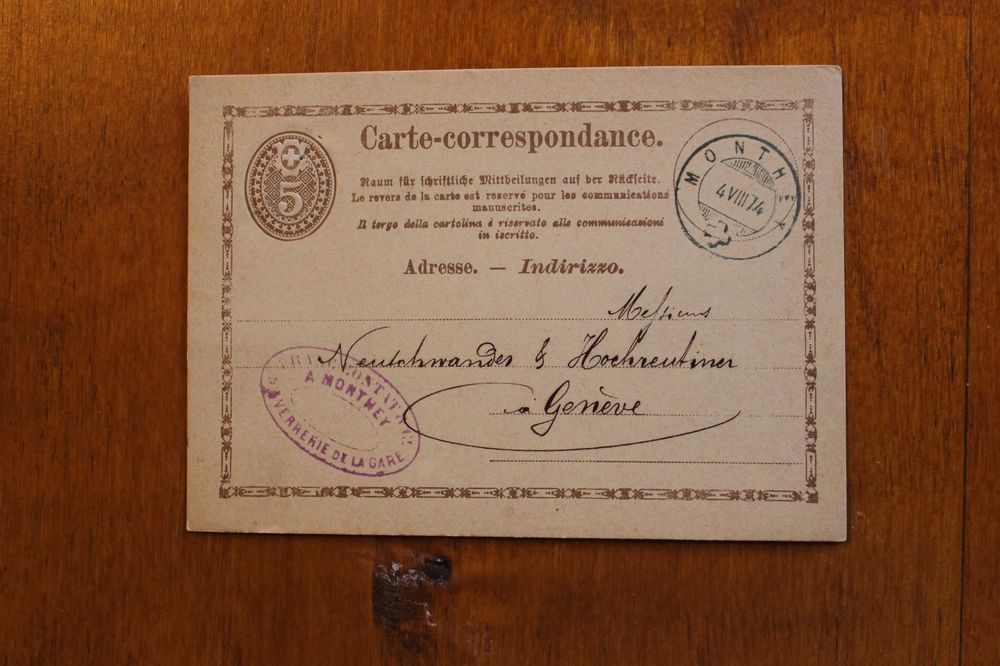 Carte-correspondance.
5
MONTHEY
4 VIII 74
Raum für schriftliche Mittheilungen auf der Rückseite.
Le revers de la carte est reservé pour les communications
manuscrites.
Il tergo della cartolina è riservato alle communicazioni
in iscritto.
Adresse. — Indirizzo.
Messieurs
Neuschwander & Hochreutiner
à Genève
A MONTHEY
VERRERIE DE LA GARE